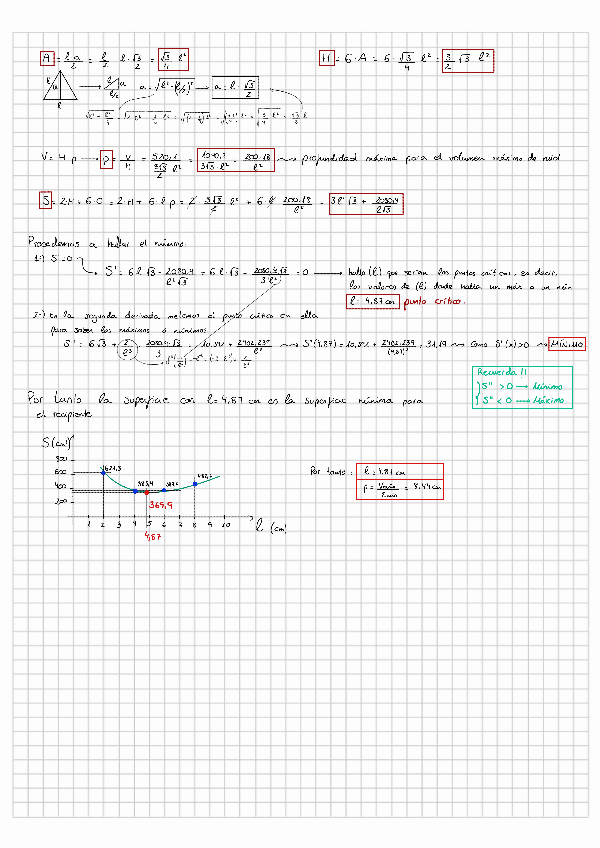 A = l·a/2 = l/2 · l·√3/2 = √3/4 l²
H = 6·A = 6·√3/4 l² = 3/2 √3 l²
l a l
l a l/2
a = √(l²-(l/2)²) → a = l·√3/2
V = H·p → p = V/H = 520,1/(3√3/2 l²) = 1040,2/(3√3 l²) = 200,18/l² → profundidad máxima para el volumen máximo de miel
S = 2·H + 6·C = 2·H + 6·l·p = 2·3√3/2 l² + 6·l·200,18/l² = 3l²√3 + 2080,4/(l√3)
Procedemos a hallar el mínimo:
1º) S'=0
S' = 6l√3 - 2080,4/(l²√3) = 6·l·√3 - 2080,4√3/(3l²) = 0 → hallo (l) que serían los puntos críticos, es decir,
los valores de (l) donde habrá un máx o un mín
l = 4,87 cm punto crítico.
2º) En la segunda derivada metemos el punto crítico en ella
para saber los máximos o mínimos
S'' = 6√3 + 2/l³ · 2080,4·√3/3 = 10,39 + 2402,239/l³ → S''(4,87) = 10,39 + 2402,239/(4,87)³ = 31,19 → Como S''(x)>0 → MÍNIMO
Recuerda!!
S'' > 0 → Mínimo
S'' < 0 → Máximo
Por tanto la superficie con l = 4,87 cm es la superficie mínima para
el recipiente
S (cm²)
800
600
400
200
369,9
1 2 3 4 5 6 7 8 9 10
l (cm)
4,87
Por tanto: l = 4,87 cm
p = = 8,44 cm